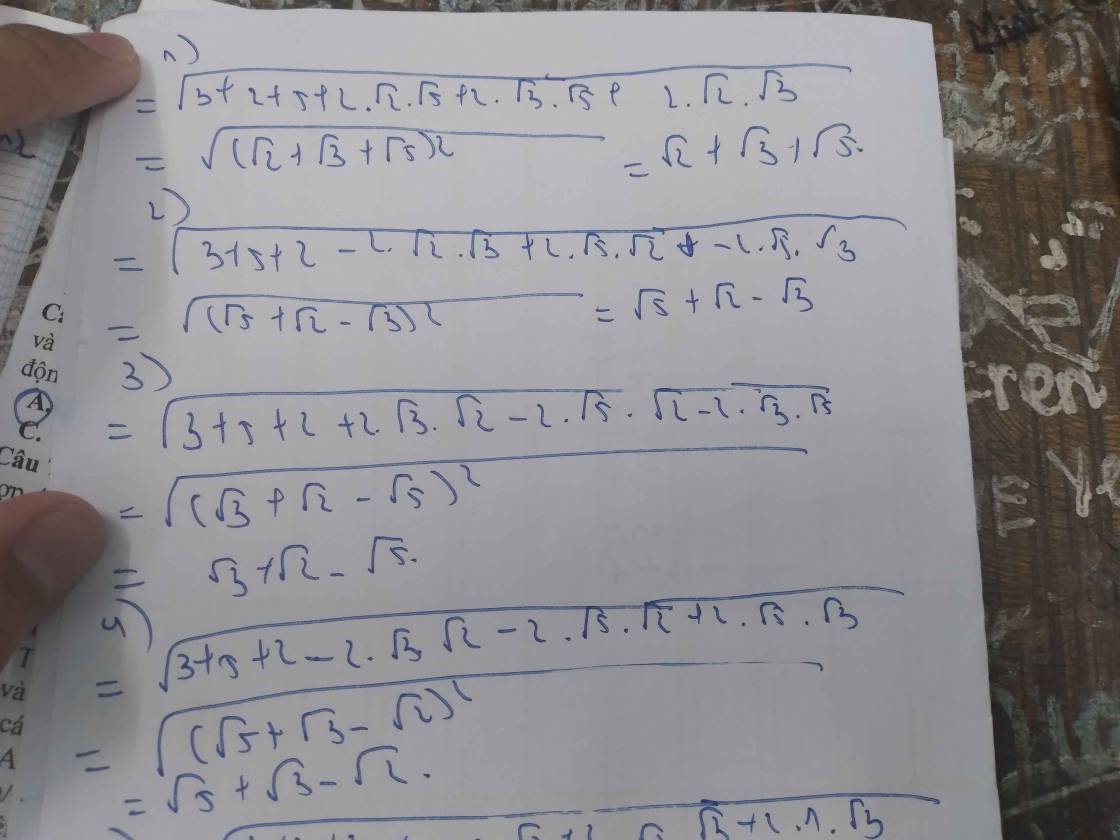 1)
= √(3+2+5+2.√2.√5+2.√3.√5+ 2.√2.√3)
= √((√2+√3+√5)²) = √2+√3+√5.
2)
= √(3+5+2-2.√2.√3+2.√5.√2 -2.√5.√3)
= √((√5+√2-√3)²) = √5+√2-√3
3)
= √(3+5+2+2.√3.√2-2.√5.√2-2.√3.√5)
= √((√3+√2-√5)²)
= √3+√2-√5.
4)
= √(3+5+2-2.√3 √2-2.√5.√2+2.√5.√3)
= √((√5+√3-√2)²)
= √5+√3-√2.
và
độn
A.
C.
Câu
T
và
cá
A
Minh
ren